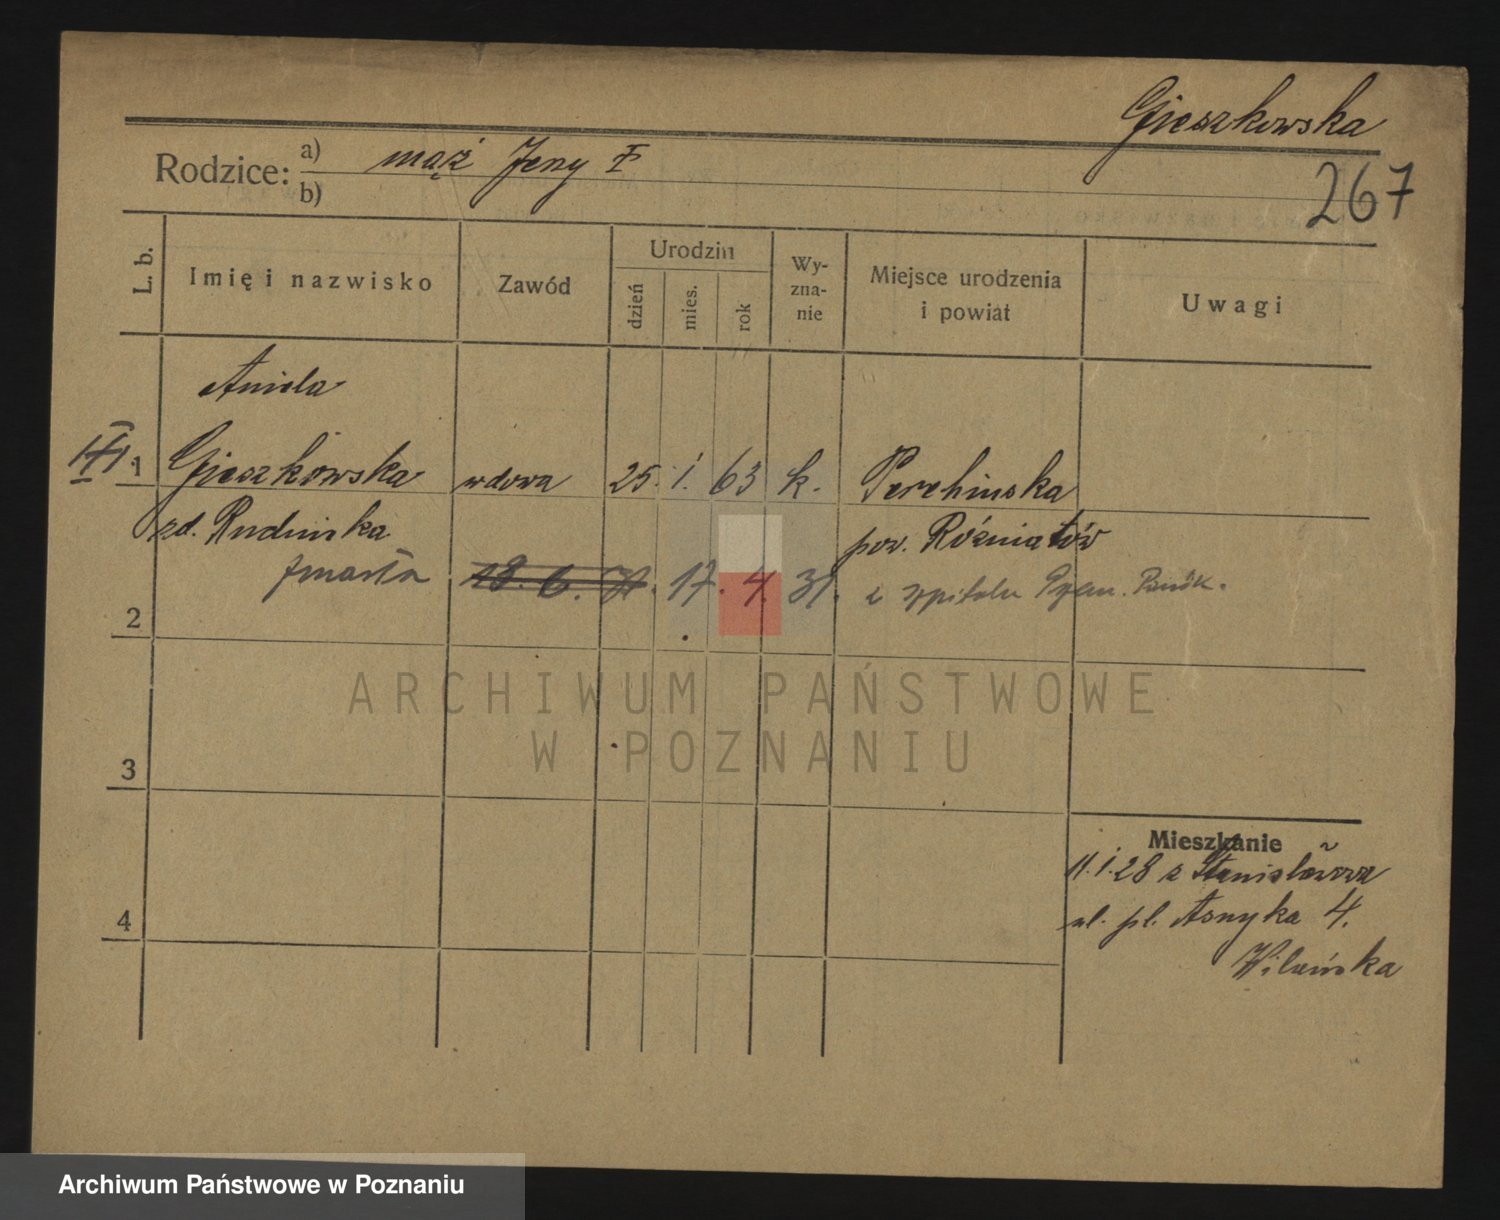 Gieszkowska
Rodzice: a) mąż Jerzy
b)
267
L. b.
Imię i nazwisko
Zawód
Urodzin
dzień
mies.
rok
Wy-
zna-
nie
Miejsce urodzenia
i powiat
Uwagi
Aniela
1 Gieszkowska wdowa 25. 1. 63 k. Perehinska
zd. Rudnicka pow. Rożniatów
zmarła 18. 6. 31. 17. 4. 31. z szpitala
2
ARCHIWUM PAŃSTWOWE
W POZNANIU
3
Mieszkanie
11.1.28 z Stanisławowa
ul. pl. Asnyka 4.
4
Wileńska
Archiwum Państwowe w Poznaniu